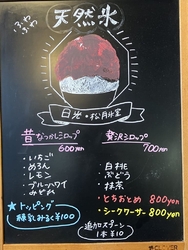 ふわ
ふわ
天然氷
日光・松月氷室
昔なつかしシロップ
600yen
・いちご
・めろん
・レモン
・ブルーハワイ
・みぞれ
★トッピング
練乳みるく¥100
贅沢シロップ
700yen
・白桃
・ぶどう
・抹茶
・とちおとめ 800yen
・シークワーサー 800yen
追加スタート
1本 ¥10